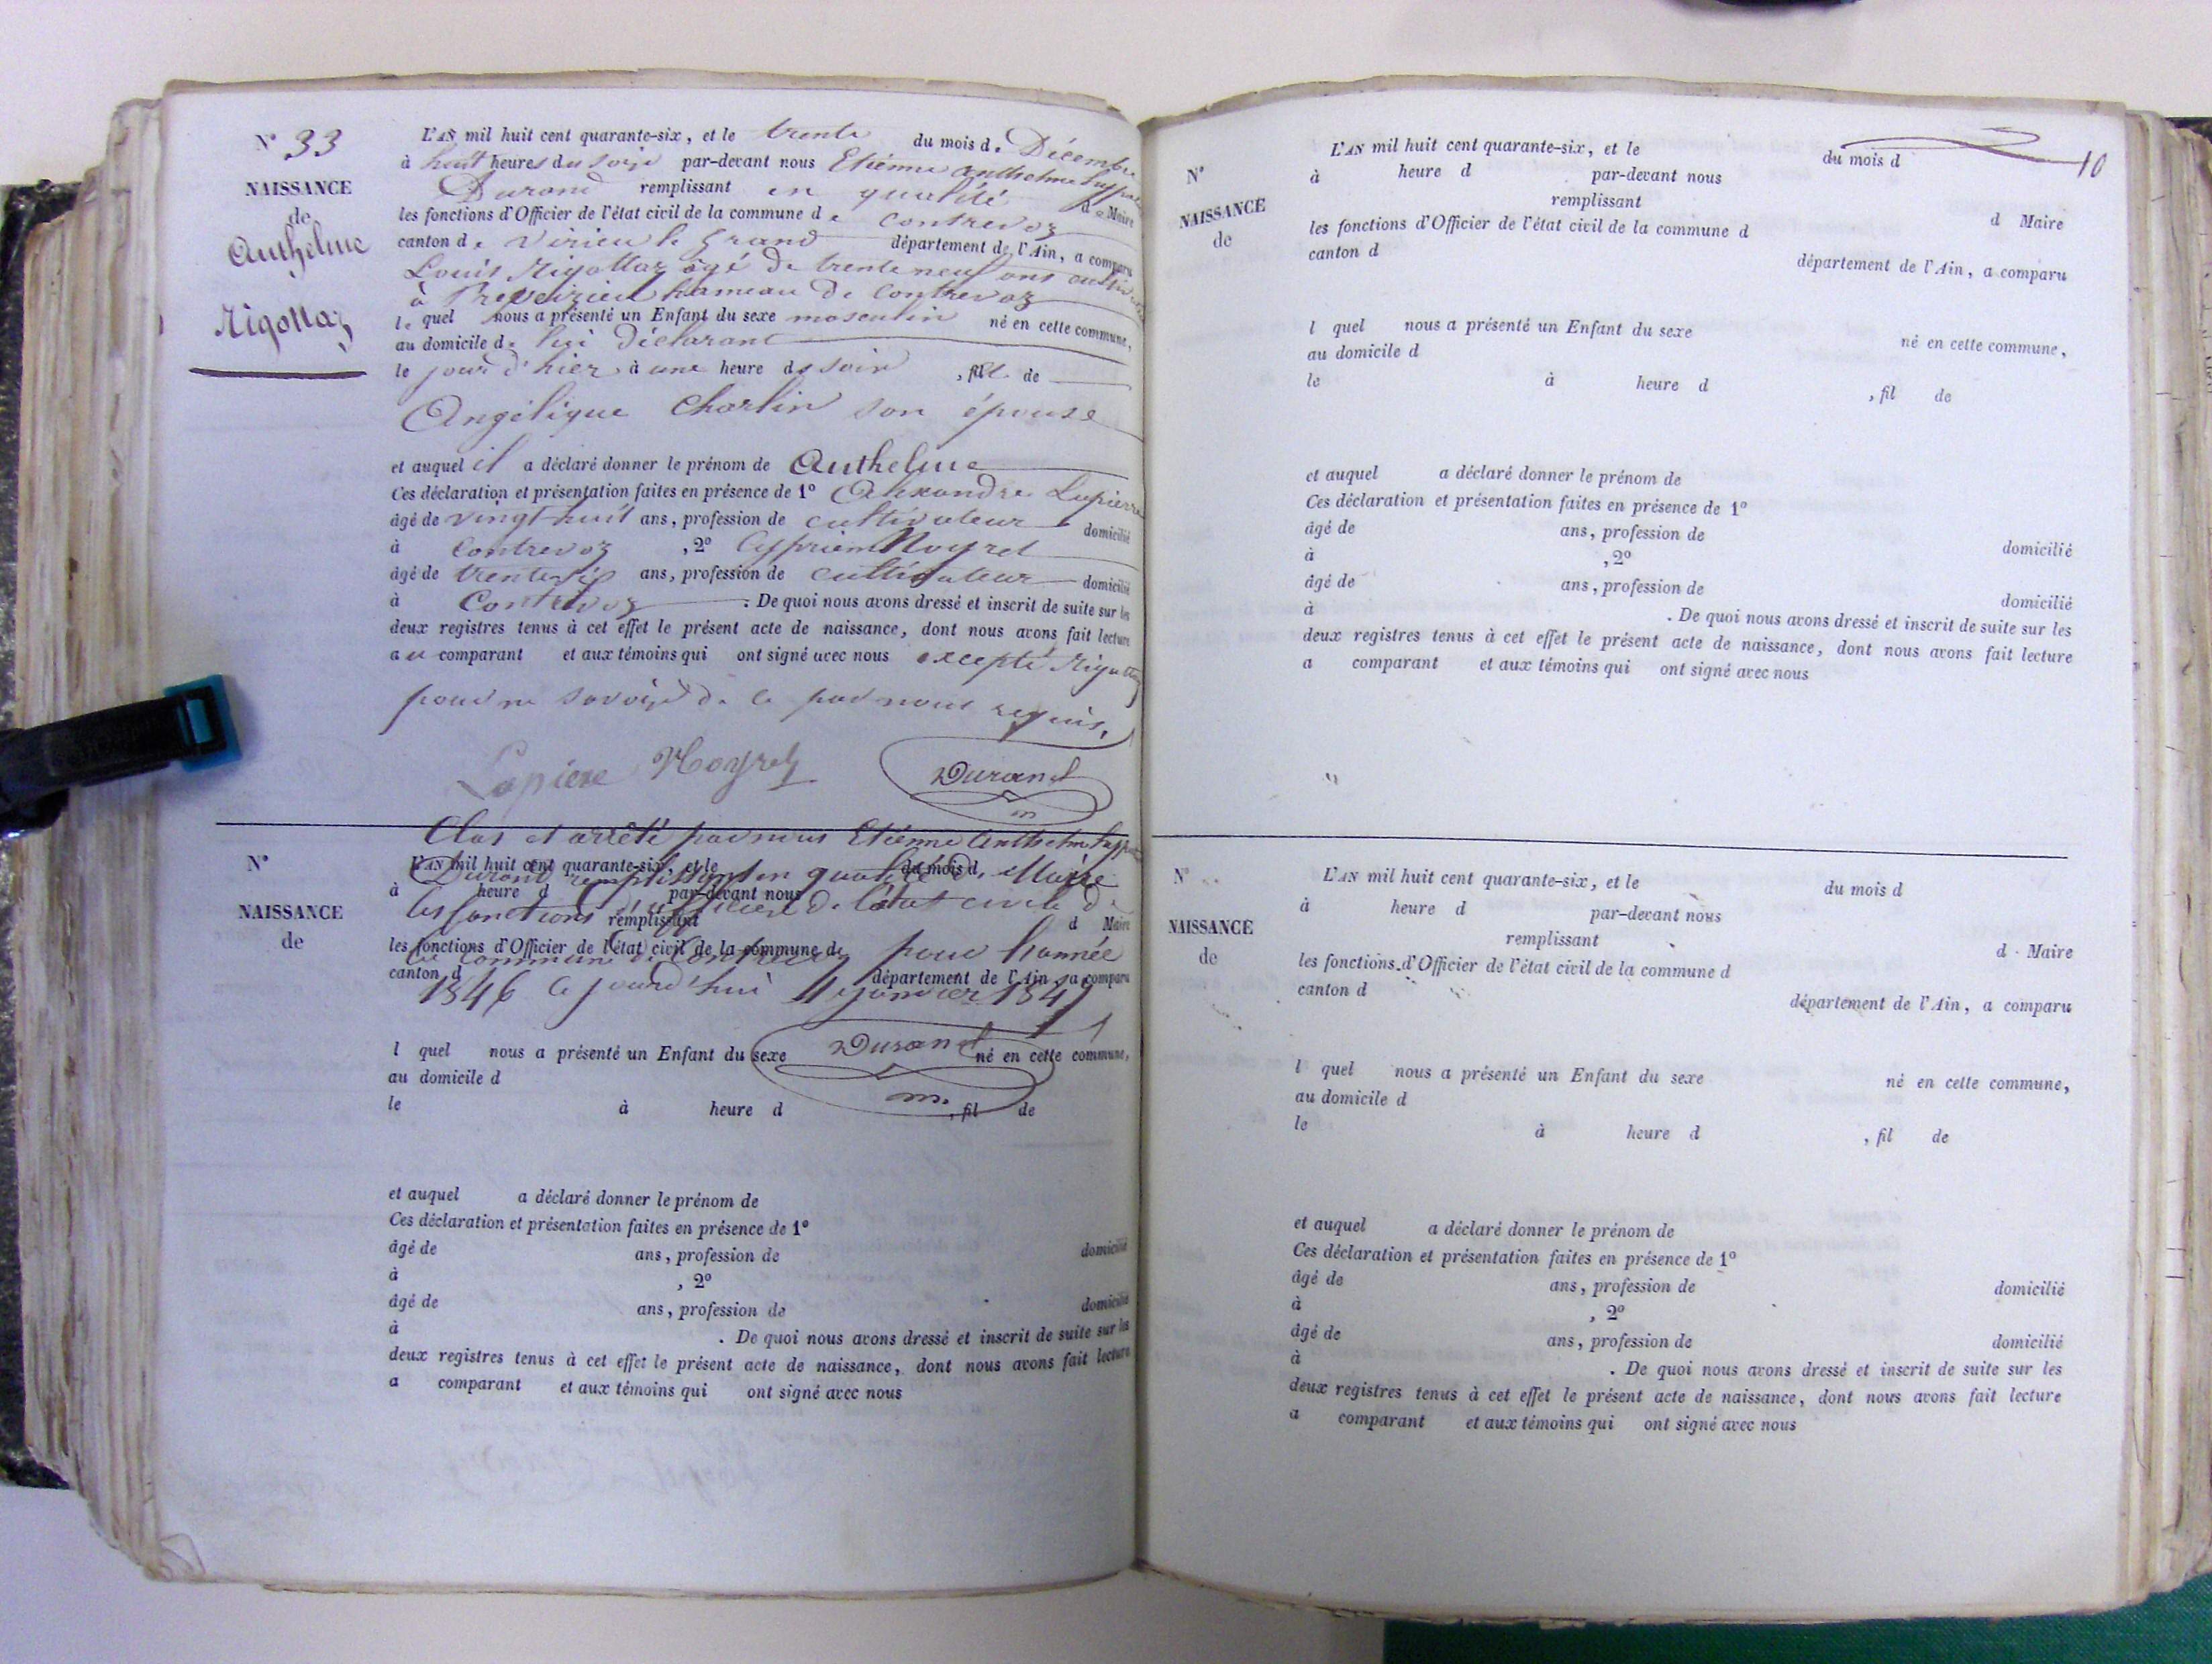 N° 33
NAISSANCE
de
Anthelme
Rigottaz
L'AN mil huit cent quarante-six, et le trente du mois de Décembre
à huit heures du soir par-devant nous Etienne Anthelme
Durand remplissant en qualité de Maire
les fonctions d'Officier de l'état civil de la commune de Contrevoz
canton de Virieu le Grand département de l'Ain, a comparu
Louis Rigottaz âgé de trente neuf ans
à hameau de Contrevoz
le quel nous a présenté un Enfant du sexe masculin né en cette commune,
au domicile de lui déclarant
le jour d'hier à une heure du soir, fils de
Angélique Charlin son épouse
et auquel il a déclaré donner le prénom de Anthelme
Ces déclaration et présentation faites en présence de 1° Alexandre Lapierre
âgé de vingt huit ans, profession de cultivateur domicilié
à Contrevoz, 2° Cyprien Noyret
âgé de ans, profession de cultivateur domicilié
à Contrevoz. De quoi nous avons dressé et inscrit de suite sur les
deux registres tenus à cet effet le présent acte de naissance, dont nous avons fait lecture
au comparant et aux témoins qui ont signé avec nous excepté Rigottaz
pour ne savoir de ce par nous requis.
Lapierre Noyret Durand
m
Clos et arrêté par nous Etienne Anthelme
Durand remplissant en qualité de Maire
les fonctions d'officier de l'état civile de
la commune de Contrevoz pour l'année
1846 ce jourd'hui 1er janvier 1847
Durand
m.
N°
NAISSANCE
de
L'AN mil huit cent quarante-six, et le du mois d
à heure d par-devant nous
remplissant
d Maire
les fonctions d'Officier de l'état civil de la commune d
canton d département de l'Ain, a comparu
l quel nous a présenté un Enfant du sexe né en cette commune,
au domicile d
le à heure d , fil de
et auquel a déclaré donner le prénom de
Ces déclaration et présentation faites en présence de 1°
âgé de ans, profession de domicilié
à , 2°
âgé de ans, profession de domicilié
à . De quoi nous avons dressé et inscrit de suite sur les
deux registres tenus à cet effet le présent acte de naissance, dont nous avons fait lecture
a comparant et aux témoins qui ont signé avec nous
10
N°
NAISSANCE
de
L'AN mil huit cent quarante-six, et le du mois d
à heure d par-devant nous
remplissant
d Maire
les fonctions d'Officier de l'état civil de la commune d
canton d département de l'Ain, a comparu
l quel nous a présenté un Enfant du sexe né en cette commune,
au domicile d
le à heure d , fil de
et auquel a déclaré donner le prénom de
Ces déclaration et présentation faites en présence de 1°
âgé de ans, profession de domicilié
à , 2°
âgé de ans, profession de domicilié
à . De quoi nous avons dressé et inscrit de suite sur les
deux registres tenus à cet effet le présent acte de naissance, dont nous avons fait lecture
a comparant et aux témoins qui ont signé avec nous
N°
NAISSANCE
de
L'AN mil huit cent quarante-six, et le du mois d
à heure d par-devant nous
remplissant
d Maire
les fonctions d'Officier de l'état civil de la commune d
canton d département de l'Ain, a comparu
l quel nous a présenté un Enfant du sexe né en cette commune,
au domicile d
le à heure d , fil de
et auquel a déclaré donner le prénom de
Ces déclaration et présentation faites en présence de 1°
âgé de ans, profession de domicilié
à , 2°
âgé de ans, profession de domicilié
à . De quoi nous avons dressé et inscrit de suite sur les
deux registres tenus à cet effet le présent acte de naissance, dont nous avons fait lecture
a comparant et aux témoins qui ont signé avec nous